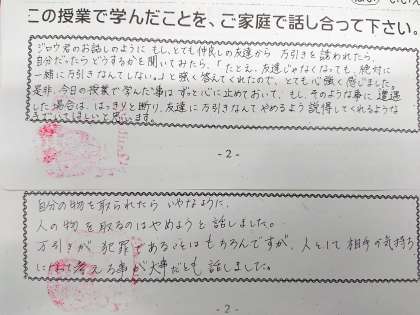 この授業で学んだことを、ご家庭で話し合って下さい。
ジロウ君のお話しのように もし、とても仲良しの友達から 万引きを誘われたら、
自分だったらどうするかを聞いてみたら、「たとえ、友達じゃなくなっても、絶対に
一緒に万引きなんてしない。」と強く答えてくれたので、とても心強く感じました。
是非、今日の授業で学んだ事はずっと心に止めておいて、もし、そのような事に遭遇
した場合は、はっきりと断り、友達に万引きなんてやめるよう説得してくれるような
と思います。
-2-
自分の物を取られたら いやなように、
人の物を取るのはやめようと話しました。
万引きが犯罪であることはもちろんですが、人として相手の気持ち
考える事が大事だとも話しました。
-2-